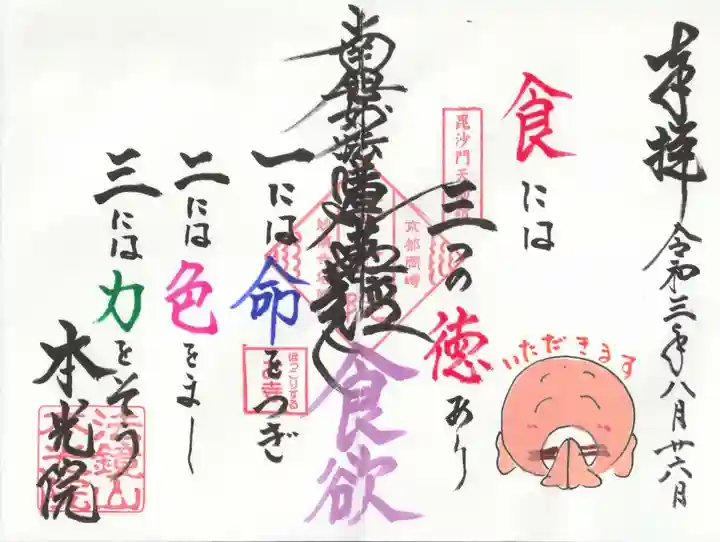 奉拝 令和三年八月廿六日
いただきます
食には
三つの徳あり
南無妙法蓮華経
食欲
一には命をつぎ
二には色をまし
三には力をそう
本光院
毘沙門天
京都岡崎
法鏡山